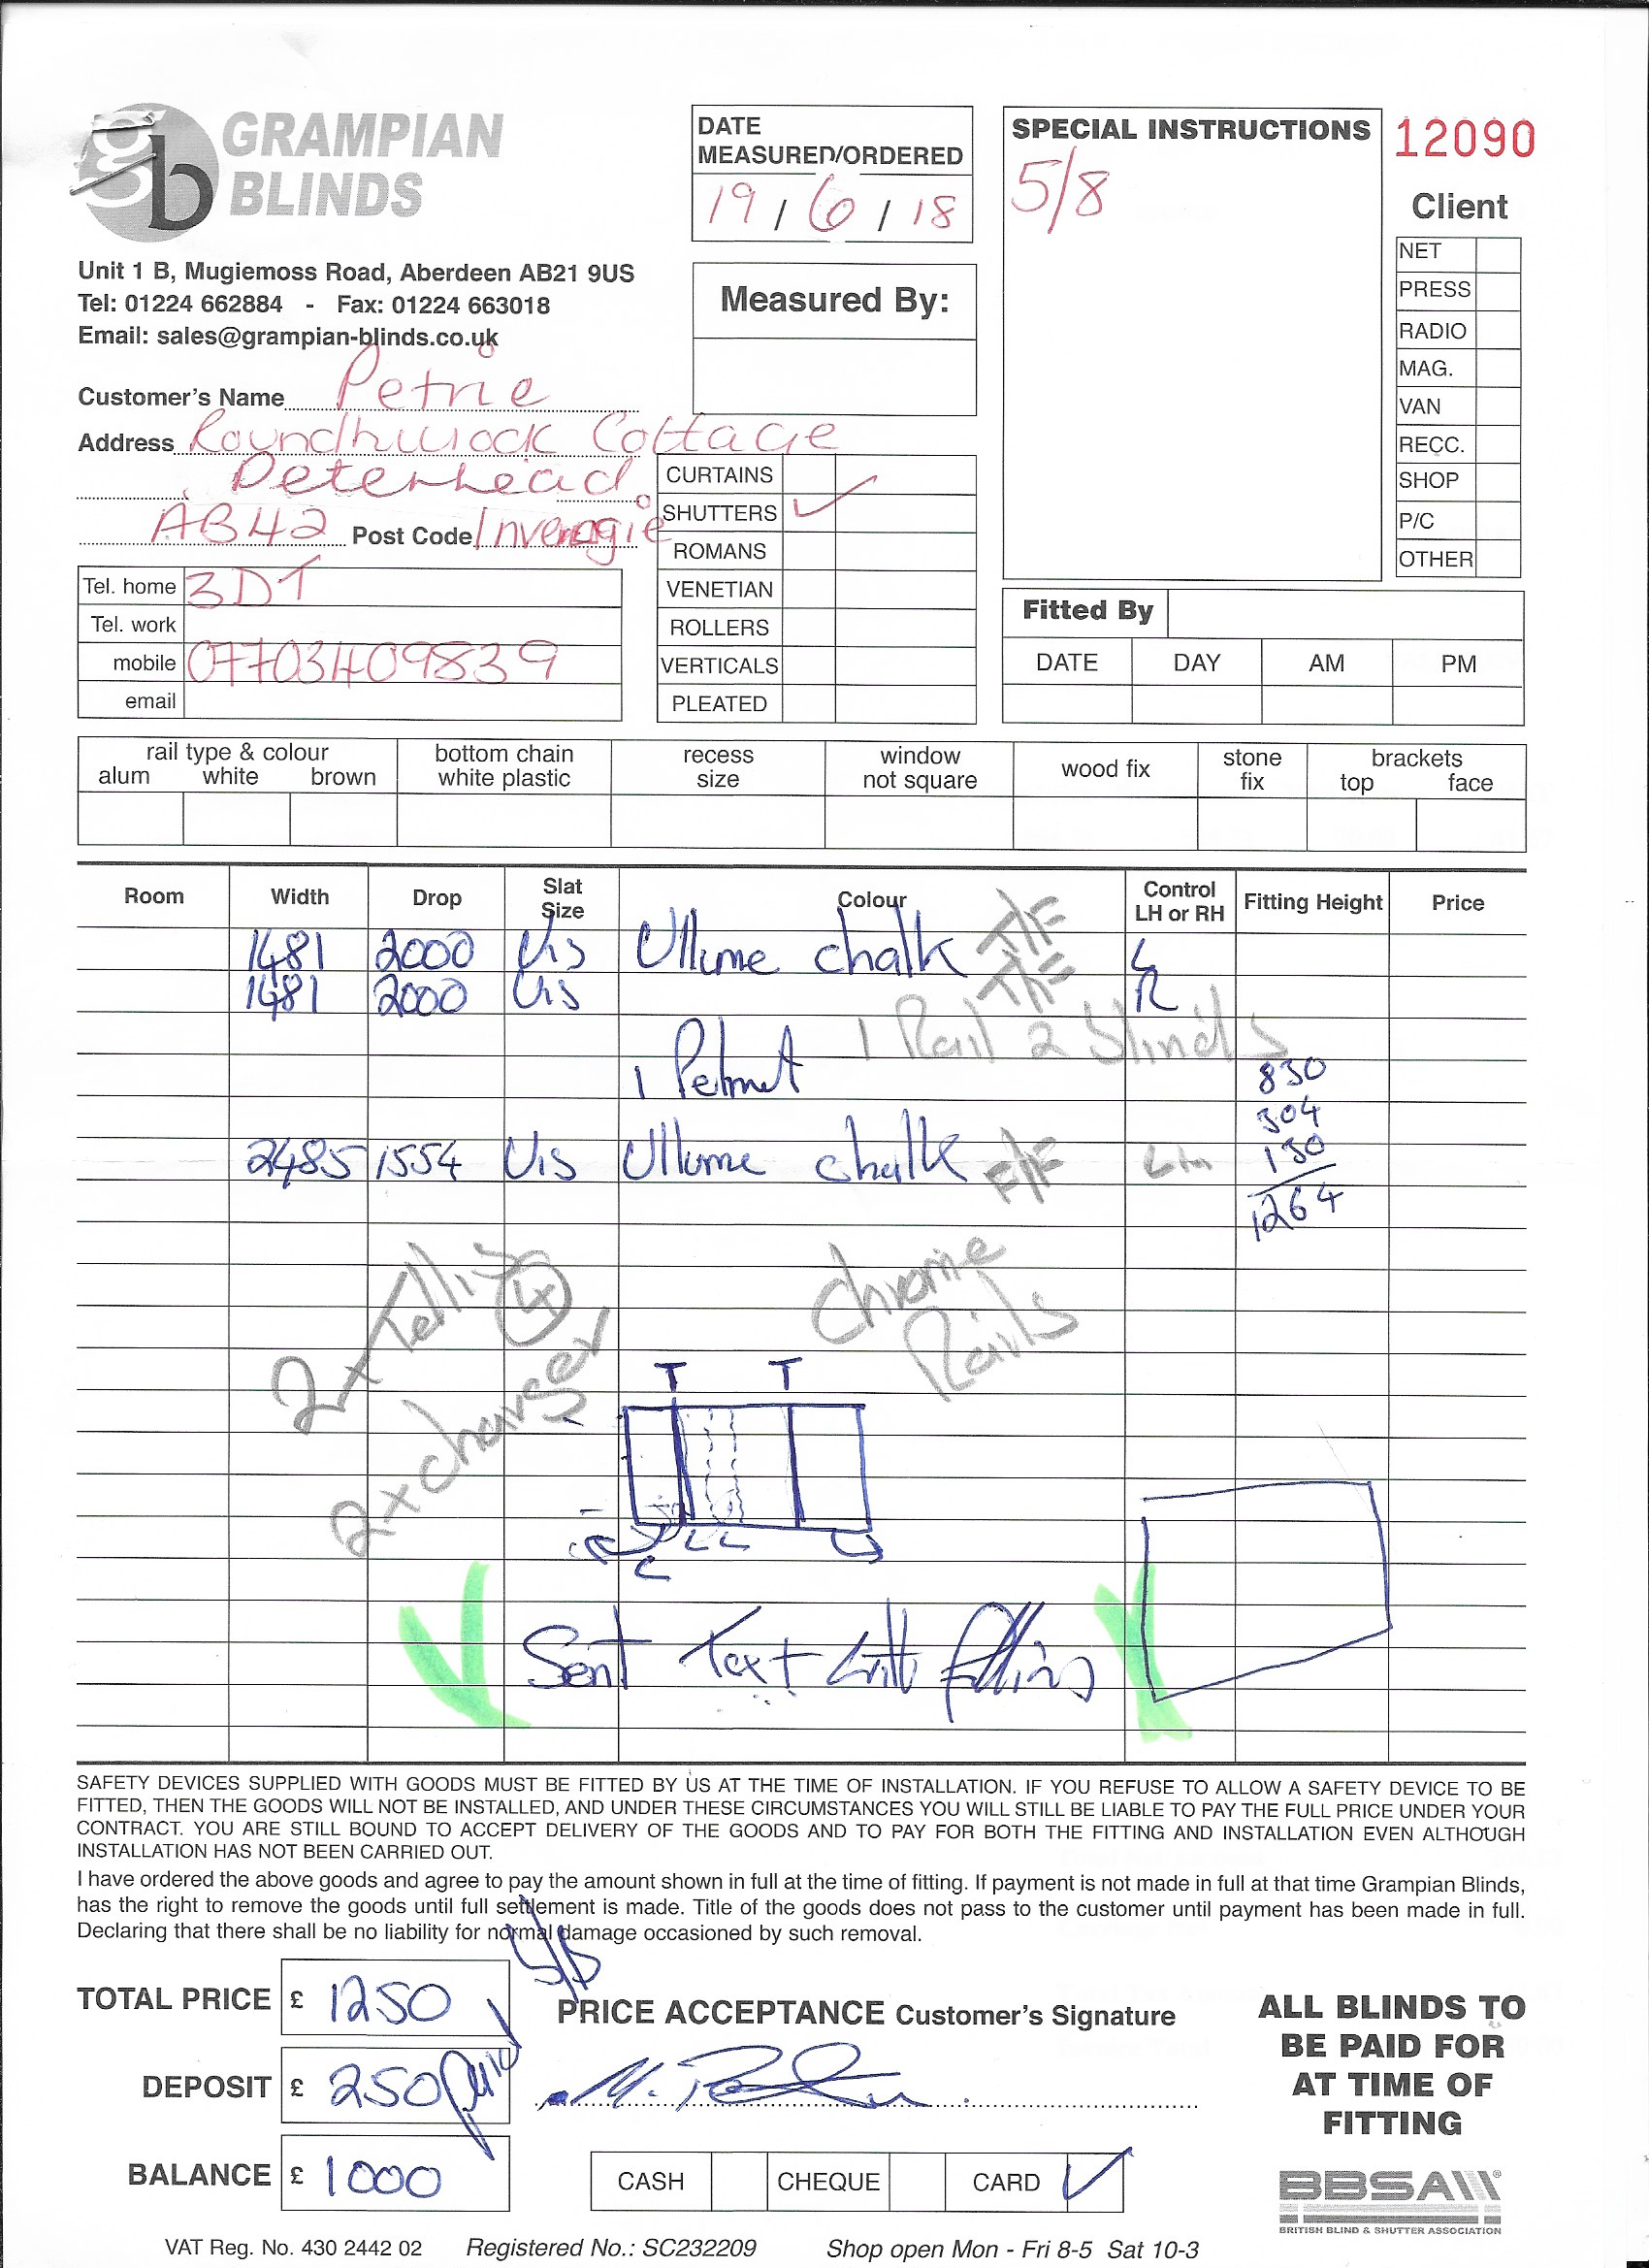 gb GRAMPIAN
BLINDS
Unit 1 B, Mugiemoss Road, Aberdeen AB21 9US
Tel: 01224 662884 - Fax: 01224 663018
Email: sales@grampian-blinds.co.uk
DATE
MEASURED/ORDERED
19 / 6 / 18
Measured By:
SPECIAL INSTRUCTIONS
5/8
12090
Client
NET
PRESS
RADIO
MAG.
VAN
RECC.
SHOP
P/C
OTHER
Customer's Name Petrie
Address Cottage
Peterhead
AB42 Post Code Inverugie
Tel. home 3DT
Tel. work
mobile 07703409839
email
CURTAINS
SHUTTERS ✓
ROMANS
VENETIAN
ROLLERS
VERTICALS
PLEATED
Fitted By
DATE DAY AM PM
rail type & colour
alum white brown
bottom chain
white plastic
recess
size
window
not square
wood fix
stone
fix
brackets
top face
Room Width Drop Slat Size Colour Control LH or RH Fitting Height Price
1481 2000 Vis chalk T/F L
1481 2000 Vis T/F R
1 Rail 2 blinds
1 Pelmet
830
304
130
1264
2485 1554 Vis chalk F/F
2x 4
2x charger
Chrome
Rails
T T
Sent Text with fitting
SAFETY DEVICES SUPPLIED WITH GOODS MUST BE FITTED BY US AT THE TIME OF INSTALLATION. IF YOU REFUSE TO ALLOW A SAFETY DEVICE TO BE
FITTED, THEN THE GOODS WILL NOT BE INSTALLED, AND UNDER THESE CIRCUMSTANCES YOU WILL STILL BE LIABLE TO PAY THE FULL PRICE UNDER YOUR
CONTRACT. YOU ARE STILL BOUND TO ACCEPT DELIVERY OF THE GOODS AND TO PAY FOR BOTH THE FITTING AND INSTALLATION EVEN ALTHOUGH
INSTALLATION HAS NOT BEEN CARRIED OUT.
I have ordered the above goods and agree to pay the amount shown in full at the time of fitting. If payment is not made in full at that time Grampian Blinds,
has the right to remove the goods until full settlement is made. Title of the goods does not pass to the customer until payment has been made in full.
Declaring that there shall be no liability for normal damage occasioned by such removal.
TOTAL PRICE £ 1250
DEPOSIT £ 250 paid
BALANCE £ 1000
PRICE ACCEPTANCE Customer's Signature
CASH CHEQUE CARD ✓
ALL BLINDS TO
BE PAID FOR
AT TIME OF
FITTING
BBSA
BRITISH BLIND & SHUTTER ASSOCIATION
VAT Reg. No. 430 2442 02 Registered No.: SC232209 Shop open Mon - Fri 8-5 Sat 10-3